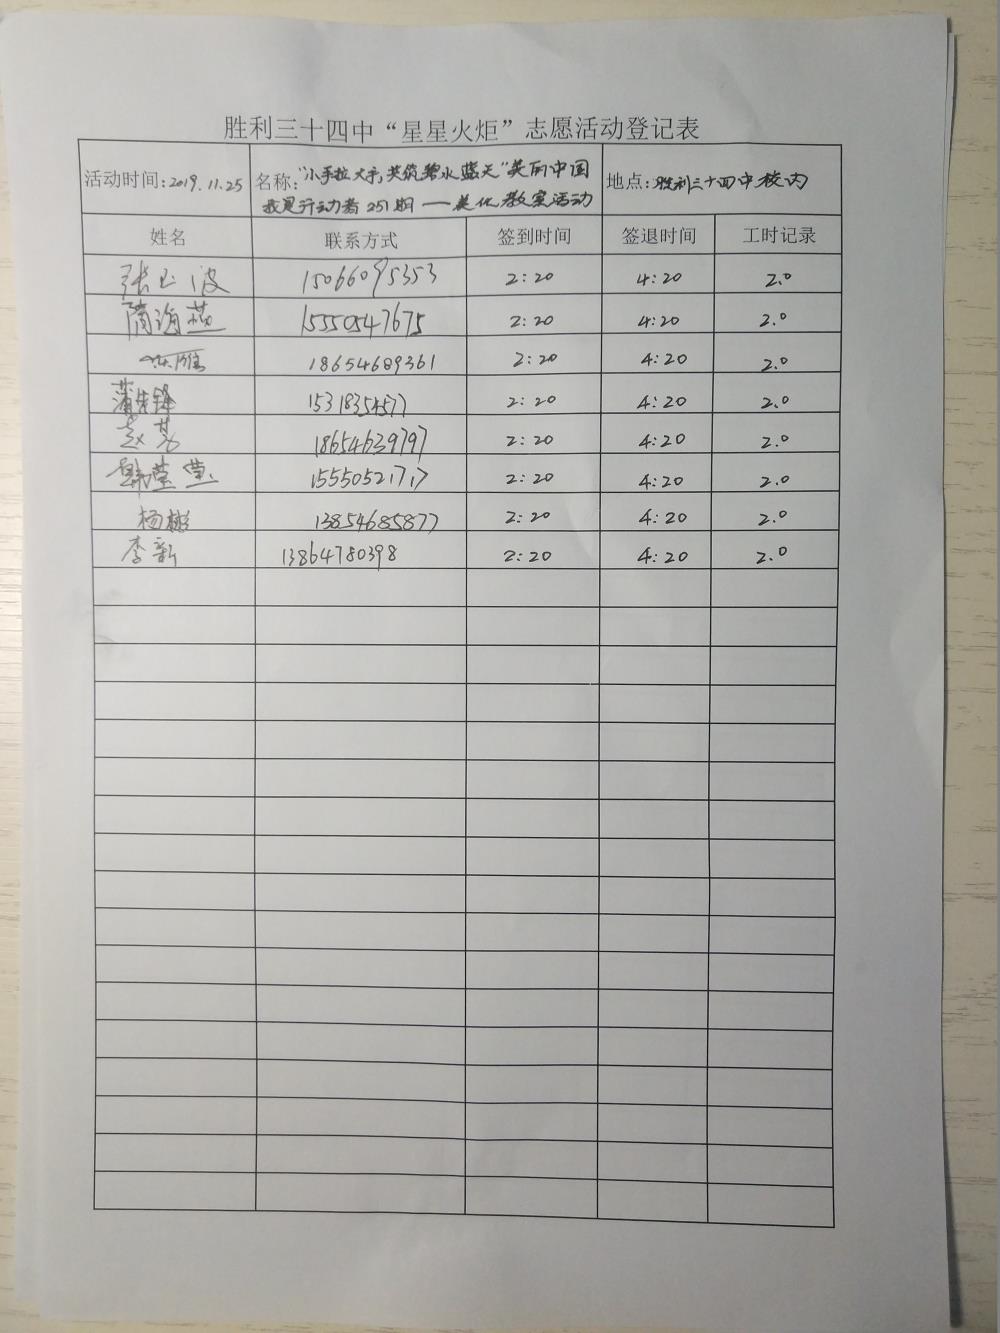 胜利三十四中“星星火炬”志愿活动登记表
活动时间:2019.11.25 名称:“小手拉大手,共筑碧水蓝天”美丽中国 地点:胜利三十四中校内
我是行动者251期——美化教室活动
姓名 联系方式 签到时间 签退时间 工时记录
张玉波 15066095353 2:20 4:20 2.0
隋海燕 15550547675 2:20 4:20 2.0
18654689361 2:20 4:20 2.0
蒲先锋 15318354577 2:20 4:20 2.0
赵芳 18654639797 2:20 4:20 2.0
韩莹莹 15550521717 2:20 4:20 2.0
杨彬 13854685877 2:20 4:20 2.0
李新 13864780398 2:20 4:20 2.0